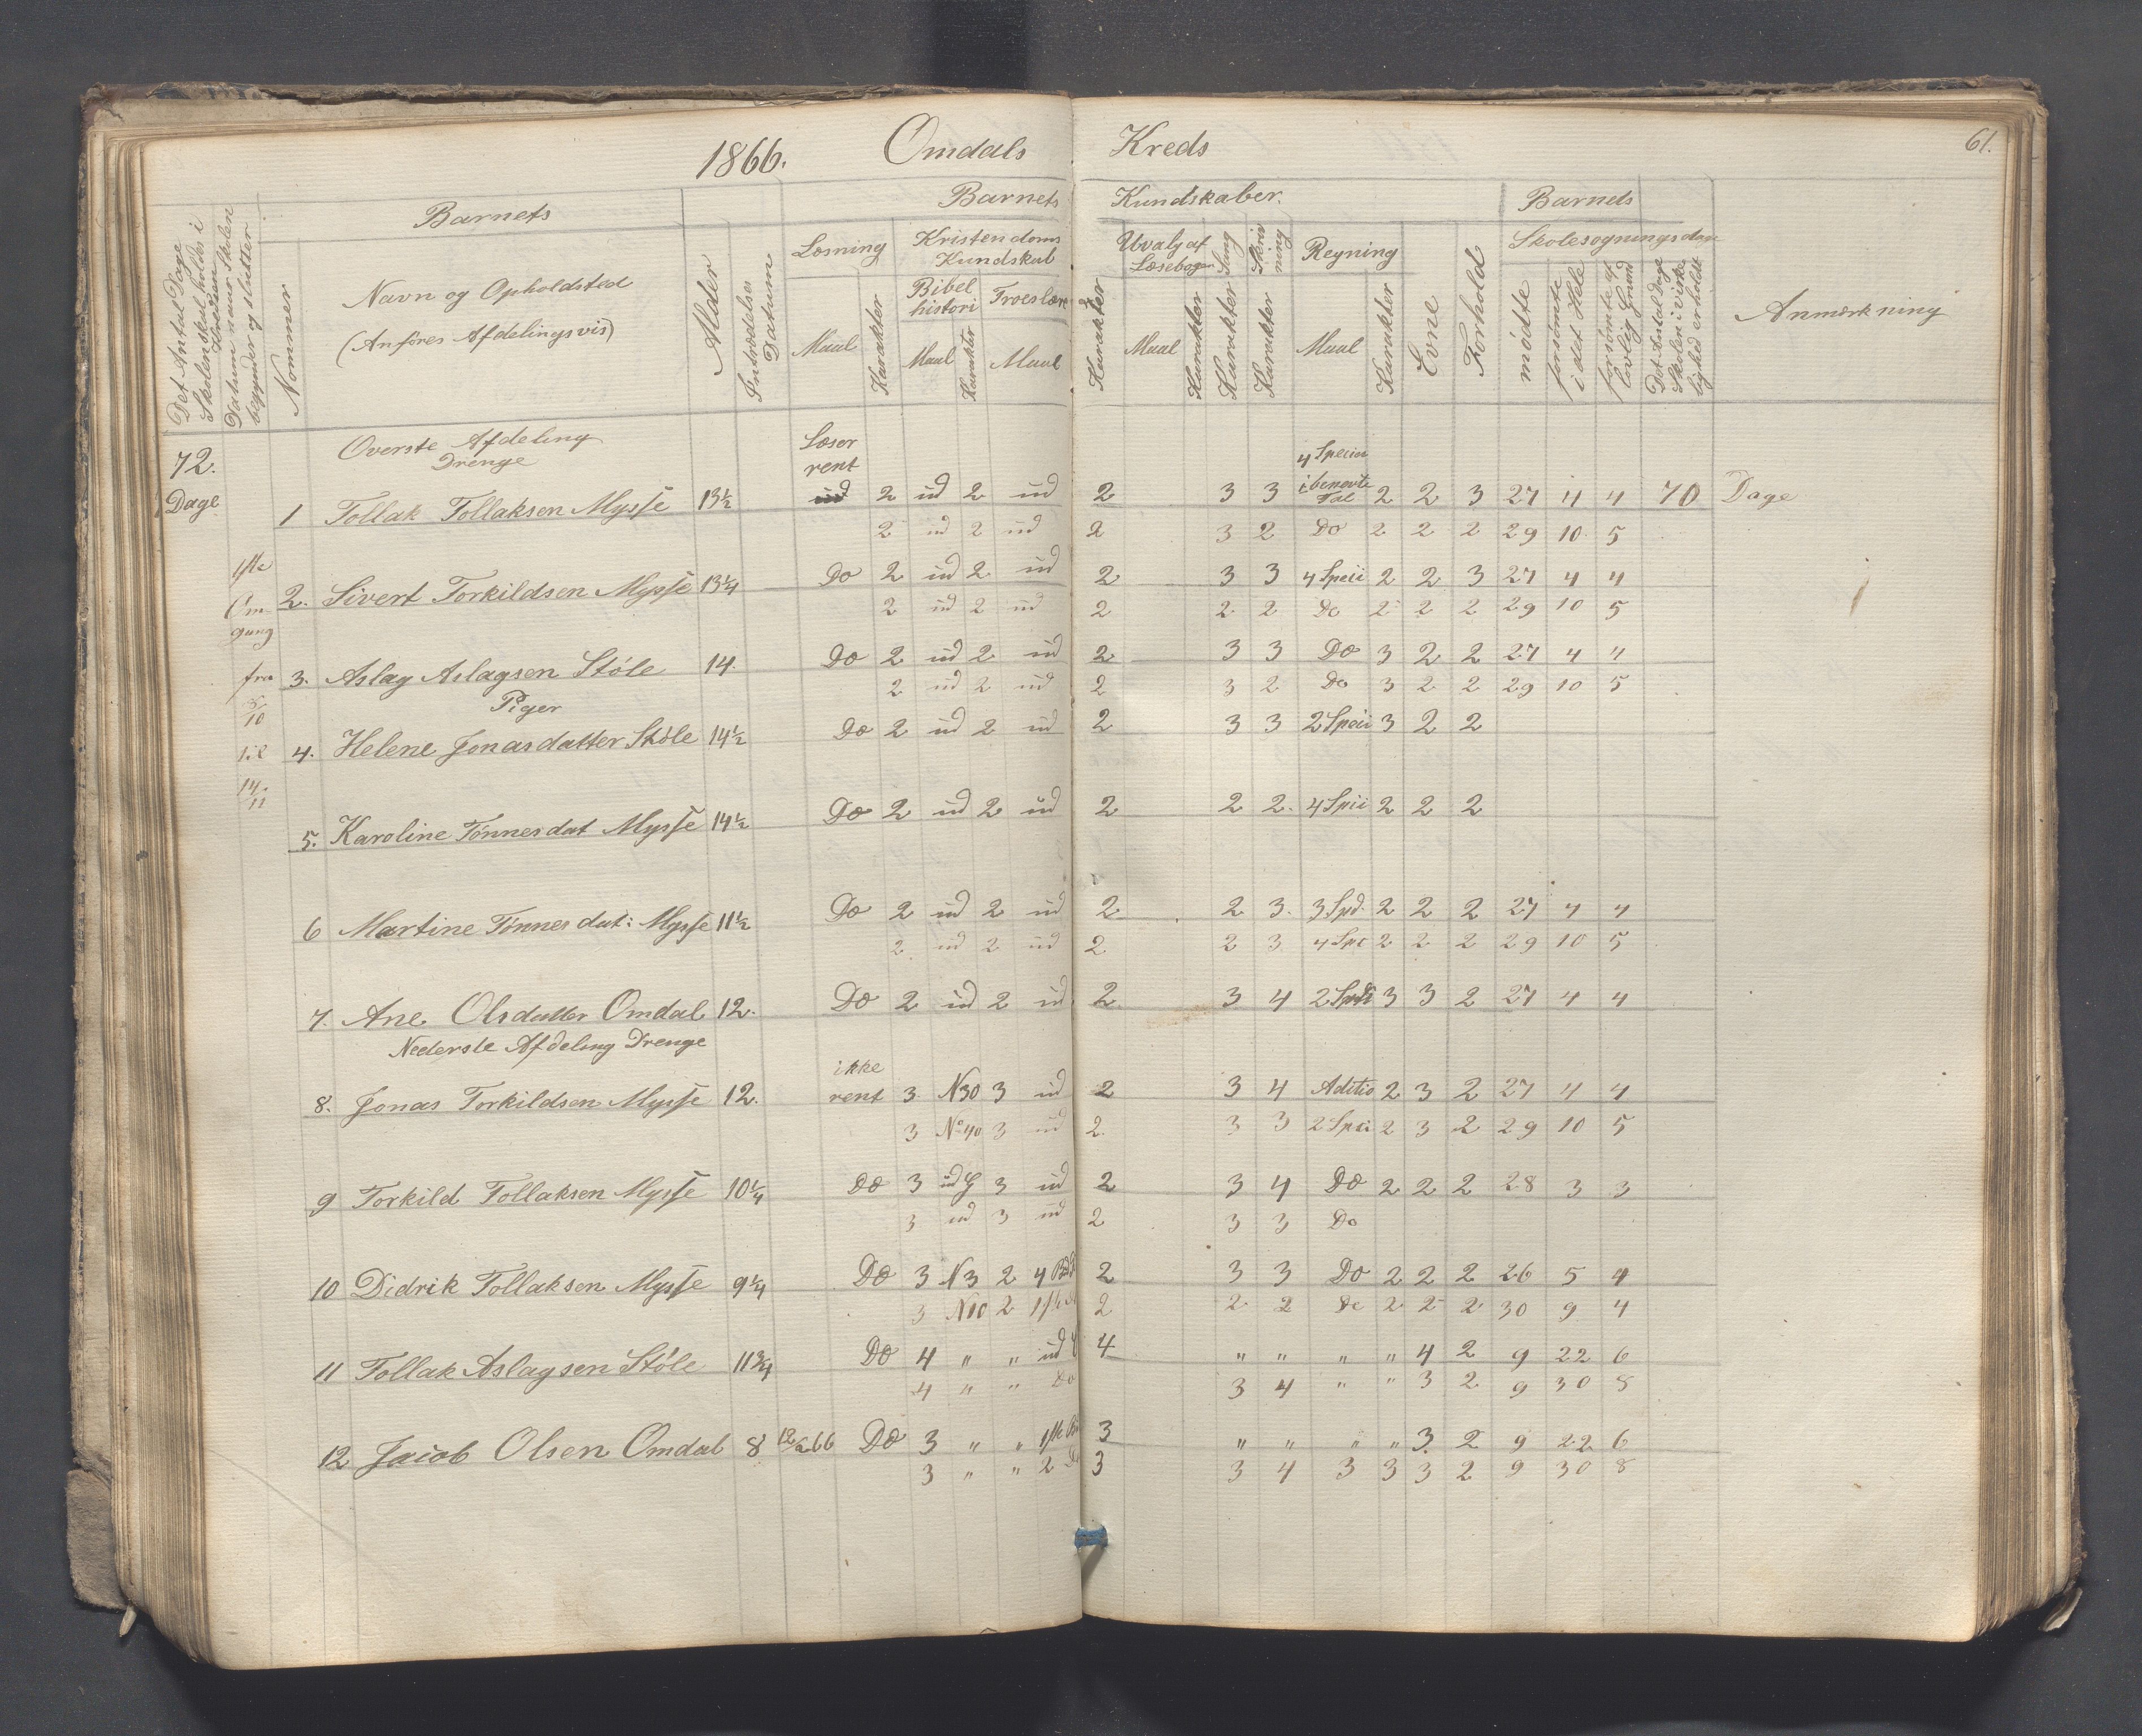 1866. Omdals Kreds 61.
Barnets Barnets Kundskaber. Barnets
Det Antal Dage Skolen skal holdes i Kredsen
Datum naar Skolen begynder og slutter
Nommer
Navn og Opholdsted
(Anføres Afdelingsvis)
Alder
Indtrædelses Datum
Læsning Kristendoms Kundskab Udvalg af Læsebogen Sang Skrivning Regning Evne Forhold Skolesøgningsdage Anmærkning
Maal Karakter Bibelhistori Maal Karakter Troeslære Maal Karakter Maal Karakter Karakter Karakter Maal Karakter
mødte forsømte i det Hele forsømte af lovlig Grund Det Antal Dage Skolen i Virkelighed er holdt
72. Dage
1ste Omgang fra 8/10 til 14/11
Overste Afdeling
Drenge
1 Tollak Tollaksen Mysse 13½ Læser rent 2 ud 2 ud 2 3 3 4 Specier i benævte Tal 2 2 3 27 4 4 70 Dage
2 ud 2 ud 2 3 2 Do 2 2 2 29 10 5
2. Sivert Torkildsen Mysse 13¼ Do 2 ud 2 ud 2 3 3 4 Specii 2 2 3 27 4 4
2 ud 2 ud 2 2 2 Do 2 2 2 29 10 5
3. Aslag Aslagsen Støle 14. Do 2 ud 2 ud 2 3 3 Do 3 2 2 27 4 4
2 ud 2 ud 2 3 2 Do 3 2 2 29 10 5
Piger
4. Helene Jonasdatter Støle 14½ Do 2 ud 2 ud 2 3 3 2 Specii 3 2 2
5. Karoline Tønnesdat Mysse 14½ Do 2 ud 2 ud 2 2 2. 4 Spii 2 2 2
6 Martine Tønnesdat: Mysse 11½ Do 2 ud 2 ud 2 2 3. 3 Spd. 2 2 2 27 4 4
2 ud 2 ud 2 2 3 4 Spc 2 2 2 29 10 5
7. Ane Olsdatter Omdal 12. Do 2 ud 2 ud. 2 3 4 2 3 3 2 27 4 4
Nederste Afdeling Drenge
8. Jonas Torkildsen Mysse 12. ikke rent 3 N30 3 ud 2 3 4 Aditio 2 3 2 27 4 4
3 No 40 3 ud 2. 3 3 2 Spci 2 3 2 29 10 5
9 Torkild Tollaksen Mysse 10¼ Do 3 ud 3 ud 2 3 4 Do 2 2 2 28 3 3
3 ud 3 ud 2 3 3 Do
10 Didrik Tollaksen Mysse 9¼ Do 3 N3 2 4 2 3 3 Do 2 2 2 26 5 4
3 N10 2 2 2 2 Do 2 2 2 30 9 4
11 Tollak Aslagsen Støle 11¾ Do 4 " " ud 4 " " " " 4 2 9 22 6
4 " " Do 3 4 " " 3 2 9 30 8
12 Jacob Olsen Omdal 8 12/2 66 Do 3 " " 1ste 3 " " " " 3 2 9 22 6
3 " " 2 3 3 4 3 3 3 2 9 30 8